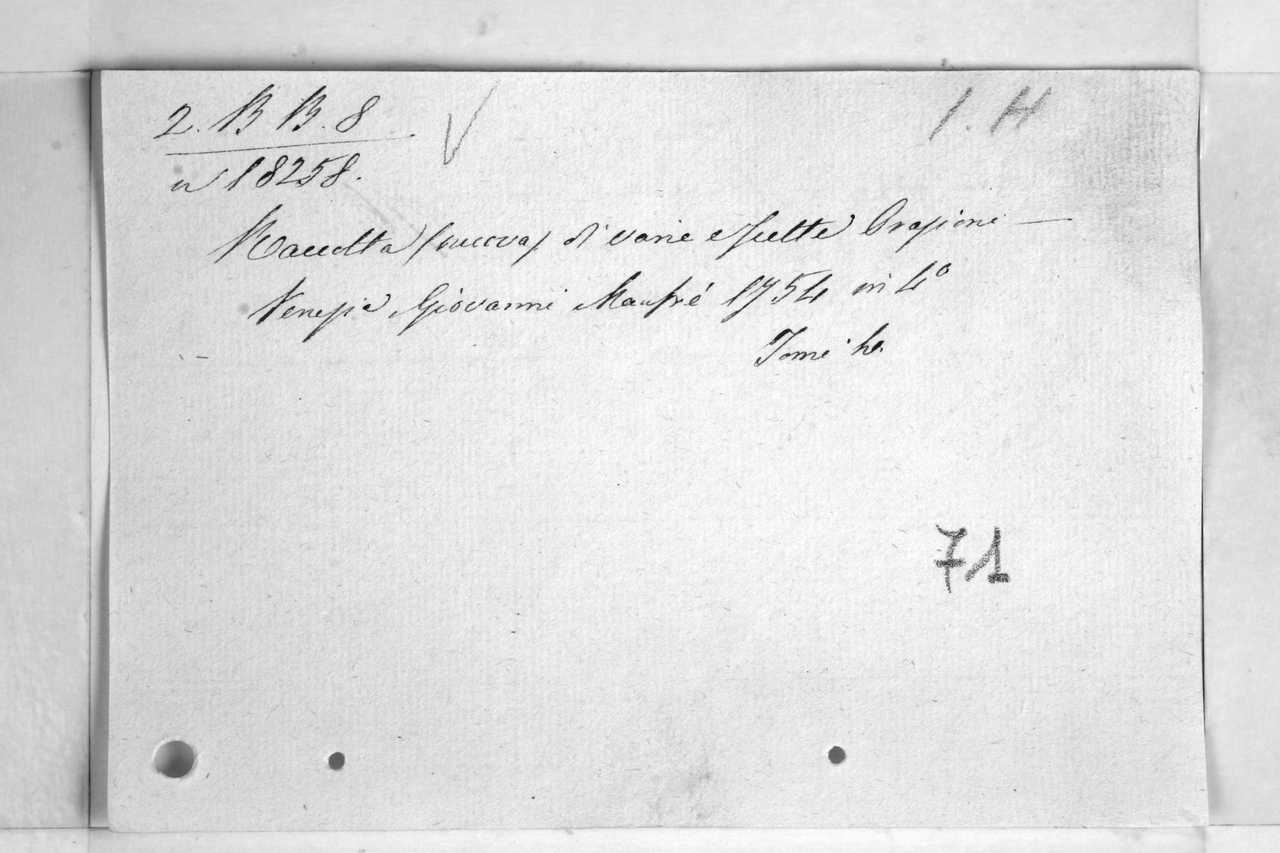 2. B B. 8 1. H
n 18258.
Raccolta (nuova) di varie e scelte Orazioni —
Venezia Giovanni Manfré 1754 in 4º
Tomi
71